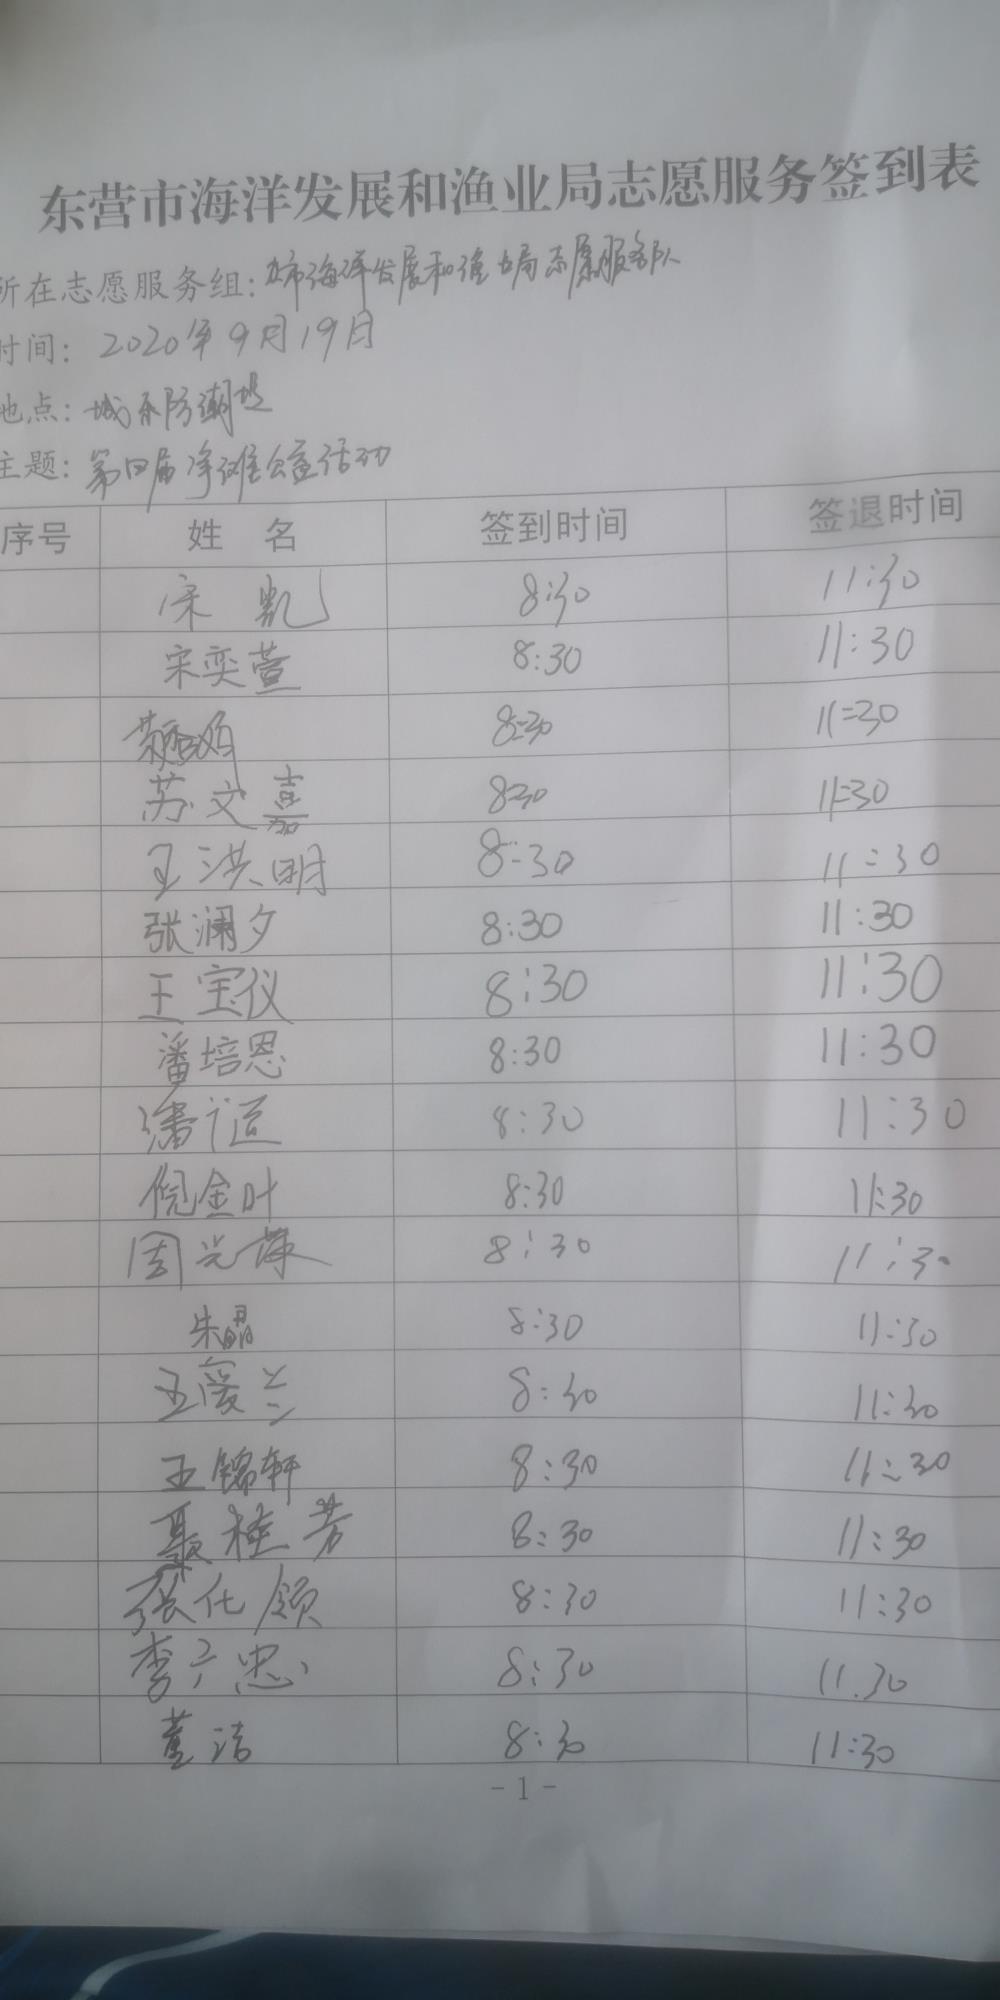 东营市海洋发展和渔业局志愿服务签到表
所在志愿服务组:市海洋发展和渔业局志愿服务队
时间: 2020年9月19日
地点: 城东防潮堤
主题: 第四届净滩公益活动
序号 姓 名 签到时间 签退时间
宋凯 8:30 11:30
宋奕萱 8:30 11:30
8:30 11:30
苏文嘉 8:30 11:30
王洪明 8:30 11:30
张澜夕 8:30 11:30
王宝仪 8:30 11:30
潘培恩 8:30 11:30
潘 8:30 11:30
倪金叶 8:30 11:30
周光荣 8:30 11:30
朱晶 8:30 11:30
王爱兰 8:30 11:30
王锦轩 8:30 11:30
聂桂芳 8:30 11:30
张化领 8:30 11:30
李广忠 8:30 11.30
董洁 8:30 11:30
- 1 -